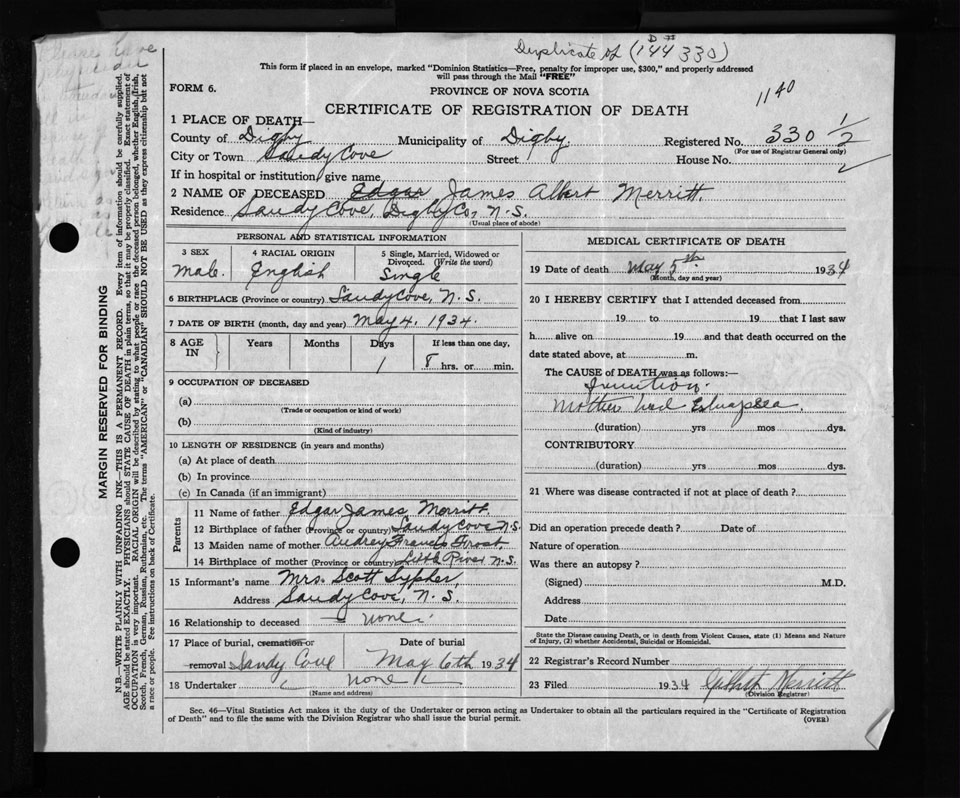 Duplicate of (D# 144330)
This form if placed in an envelope, marked "Dominion Statistics—Free, penalty for improper use, $300," and properly addressed
will pass through the Mail "FREE"
FORM 6.
PROVINCE OF NOVA SCOTIA
1140
CERTIFICATE OF REGISTRATION OF DEATH
1 PLACE OF DEATH—
County of Digby Municipality of Digby. Registered No. 330 1/2
(For use of Registrar General only)
City or Town Sandy Cove Street House No.
If in hospital or institution, give name
2 NAME OF DECEASED Edgar James Albert Merritt.
Residence Sandy Cove, Digby Co, N.S.
(Usual place of abode)
PERSONAL AND STATISTICAL INFORMATION
3 SEX 4 RACIAL ORIGIN 5 Single, Married, Widowed or Divorced. (Write the word)
Male. English Single
6 BIRTHPLACE (Province or country) Sandy Cove, N.S.
7 DATE OF BIRTH (month, day and year) May 4, 1934.
8 AGE IN Years Months Days If less than one day,
1 8 hrs. or min.
9 OCCUPATION OF DECEASED
(a)
(Trade or occupation or kind of work)
(b)
(Kind of industry)
10 LENGTH OF RESIDENCE (in years and months)
(a) At place of death
(b) In province
(c) In Canada (if an immigrant)
Parents
11 Name of father Edgar James Merritt.
12 Birthplace of father (Province or country) Sandy Cove N.S.
13 Maiden name of mother Audrey Francis Frost,
14 Birthplace of mother (Province or country) Little River N.S.
15 Informant's name Mrs. Scott Sypher,
Address Sandy Cove, N.S.
16 Relationship to deceased none.
17 Place of burial, cremation or Date of burial
removal Sandy Cove May 6th 1934
18 Undertaker none
(Name and address)
MEDICAL CERTIFICATE OF DEATH
19 Date of death May 5th 1934
(Month, day and year)
20 I HEREBY CERTIFY that I attended deceased from
19 to 19 that I last saw
h alive on 19 and that death occurred on the
date stated above, at m.
The CAUSE of DEATH was as follows:—
Mother had
(duration) yrs mos dys.
CONTRIBUTORY
(duration) yrs mos dys.
21 Where was disease contracted if not at place of death?
Did an operation precede death? Date of
Nature of operation
Was there an autopsy?
(Signed) M.D.
Address
Date
State the Disease causing Death, or in death from Violent Causes, state (1) Means and Nature
of Injury, (2) whether Accidental, Suicidal or Homicidal.
22 Registrar's Record Number
23 Filed 1934 Merritt
(Division Registrar)
Sec. 46—Vital Statistics Act makes it the duty of the Undertaker or person acting as Undertaker to obtain all the particulars required in the "Certificate of Registration
of Death" and to file the same with the Division Registrar who shall issue the burial permit.
(OVER)
MARGIN RESERVED FOR BINDING
N.B.—WRITE PLAINLY WITH UNFADING INK—THIS IS A PERMANENT RECORD. Every item of information should be carefully supplied.
AGE should be stated EXACTLY. PHYSICIANS should STATE CAUSE OF DEATH in plain terms, so that it may be properly classified. Exact statement of
OCCUPATION is very important. RACIAL ORIGIN will be described by stating to what people or race the deceased person belonged, whether English, Irish,
Scotch, French, German, Russian, Ruthenian, etc. The terms "AMERICAN" or "CANADIAN" SHOULD NOT BE USED as they express citizenship but not
a race or people. See instructions on back of Certificate.